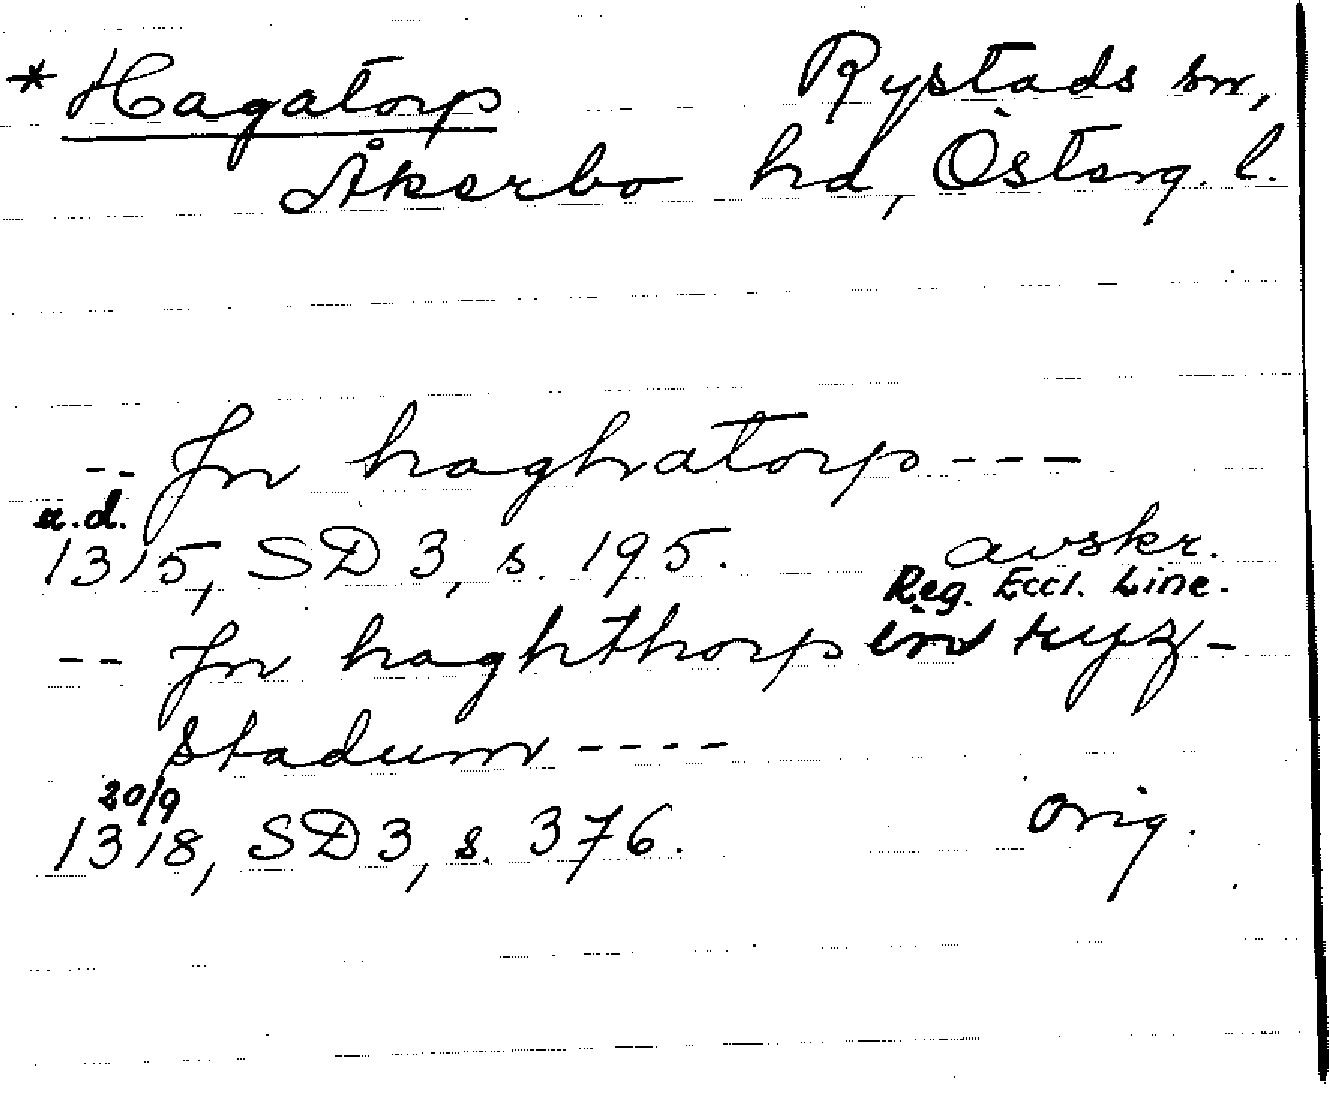 * Hagatorp Rystads sn,
Åkerbo hd, Österg. l.
-- Jn haghatorp ---
u.d.
1315, SD 3, s. 195. avskr.
Reg. Eccl. Linc.
-- Jn haghthorp in ryz-
stadum ----
20/9
1318, SD 3, s. 376. Orig.